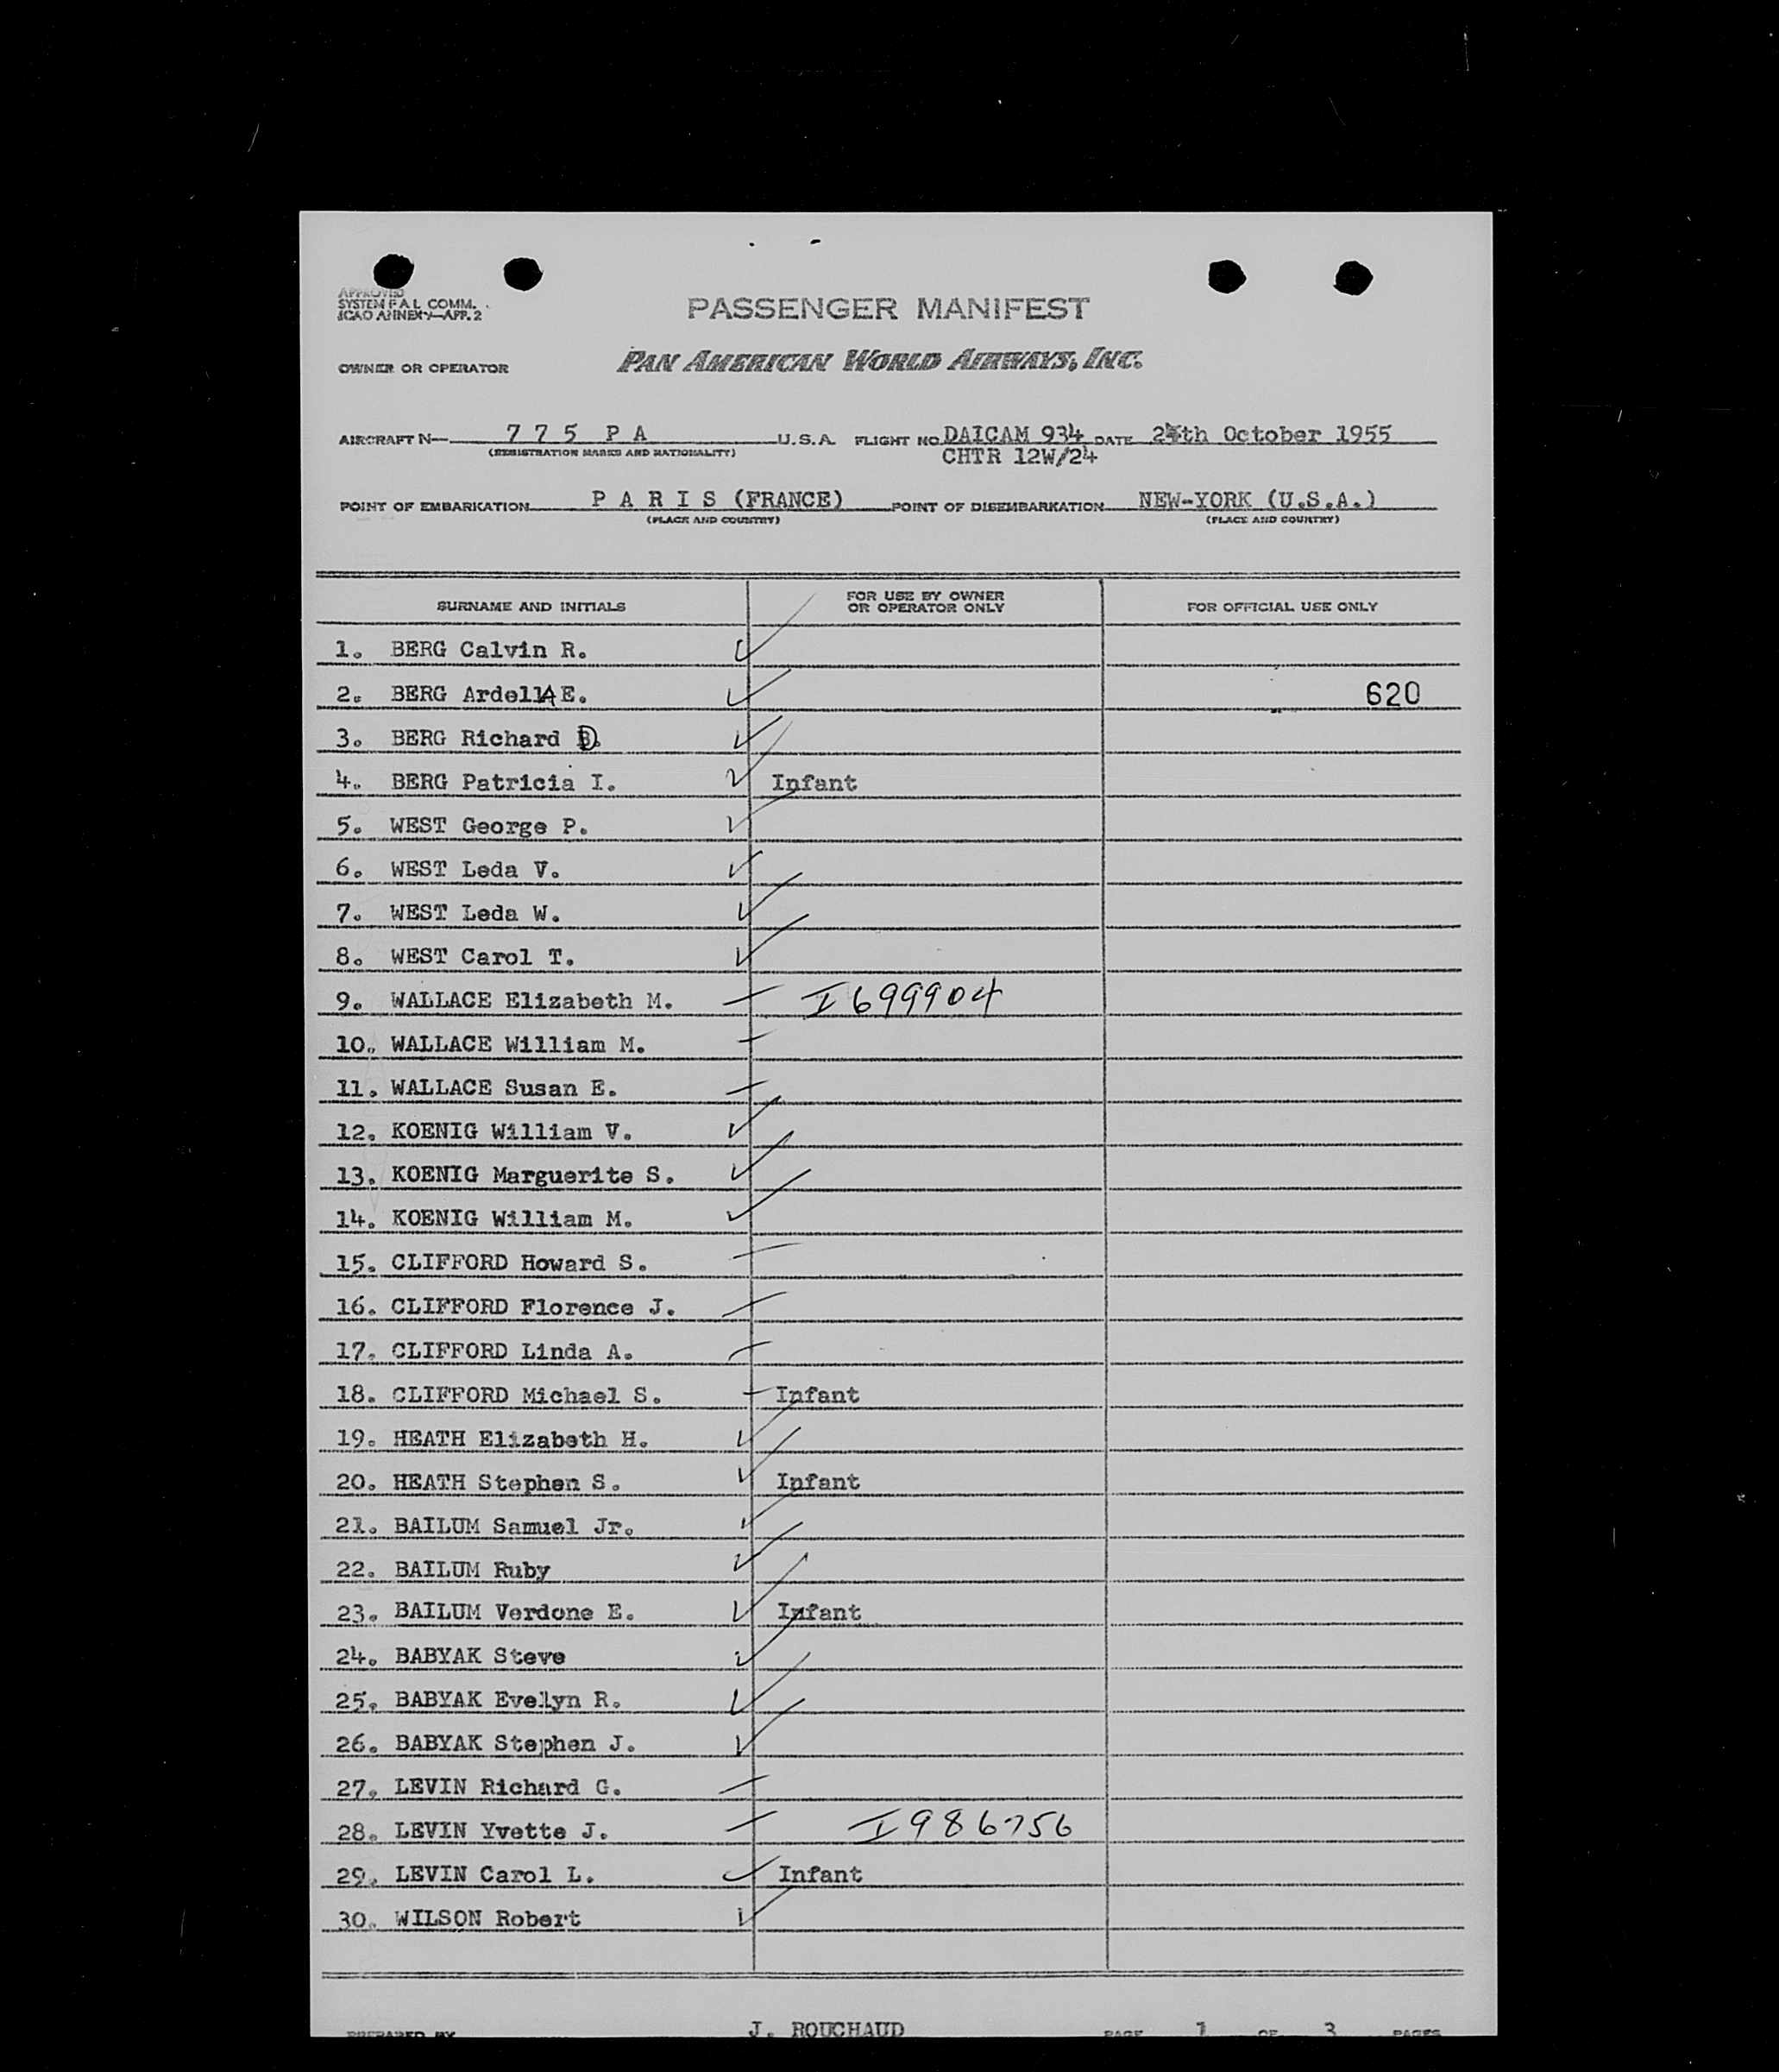 APPROVED
SYSTEM F A L COMM.
ICAO ANNEX 9—APP. 2
PASSENGER MANIFEST
OWNER OR OPERATOR PAN AMERICAN WORLD AIRWAYS, INC.
AIRCRAFT N— 7 7 5 P A U.S.A. FLIGHT NO. DAICAM 934 DATE th October 1955
(REGISTRATION MARKS AND NATIONALITY) CHTR 12W/24
POINT OF EMBARKATION P A R I S (FRANCE) POINT OF DISEMBARKATION NEW-YORK (U.S.A.)
(PLACE AND COUNTRY) (PLACE AND COUNTRY)
SURNAME AND INITIALS FOR USE BY OWNER OR OPERATOR ONLY FOR OFFICIAL USE ONLY
1. BERG Calvin R.
2. BERG ArdellA E. 620
3. BERG Richard D.
4. BERG Patricia I. Infant
5. WEST George P.
6. WEST Leda V.
7. WEST Leda W.
8. WEST Carol T.
9. WALLACE Elizabeth M. I 699904
10. WALLACE William M.
11. WALLACE Susan E.
12. KOENIG William V.
13. KOENIG Marguerite S.
14. KOENIG William M.
15. CLIFFORD Howard S.
16. CLIFFORD Florence J.
17. CLIFFORD Linda A.
18. CLIFFORD Michael S. Infant
19. HEATH Elizabeth H.
20. HEATH Stephen S. Infant
21. BAILUM Samuel Jr.
22. BAILUM Ruby
23. BAILUM Verdone E. Infant
24. BABYAK Steve
25. BABYAK Evelyn R.
26. BABYAK Stephen J.
27. LEVIN Richard G.
28. LEVIN Yvette J. I 986756
29. LEVIN Carol L. Infant
30. WILSON Robert
PREPARED BY J. ROUCHAUD PAGE 1 OF 3 PAGES